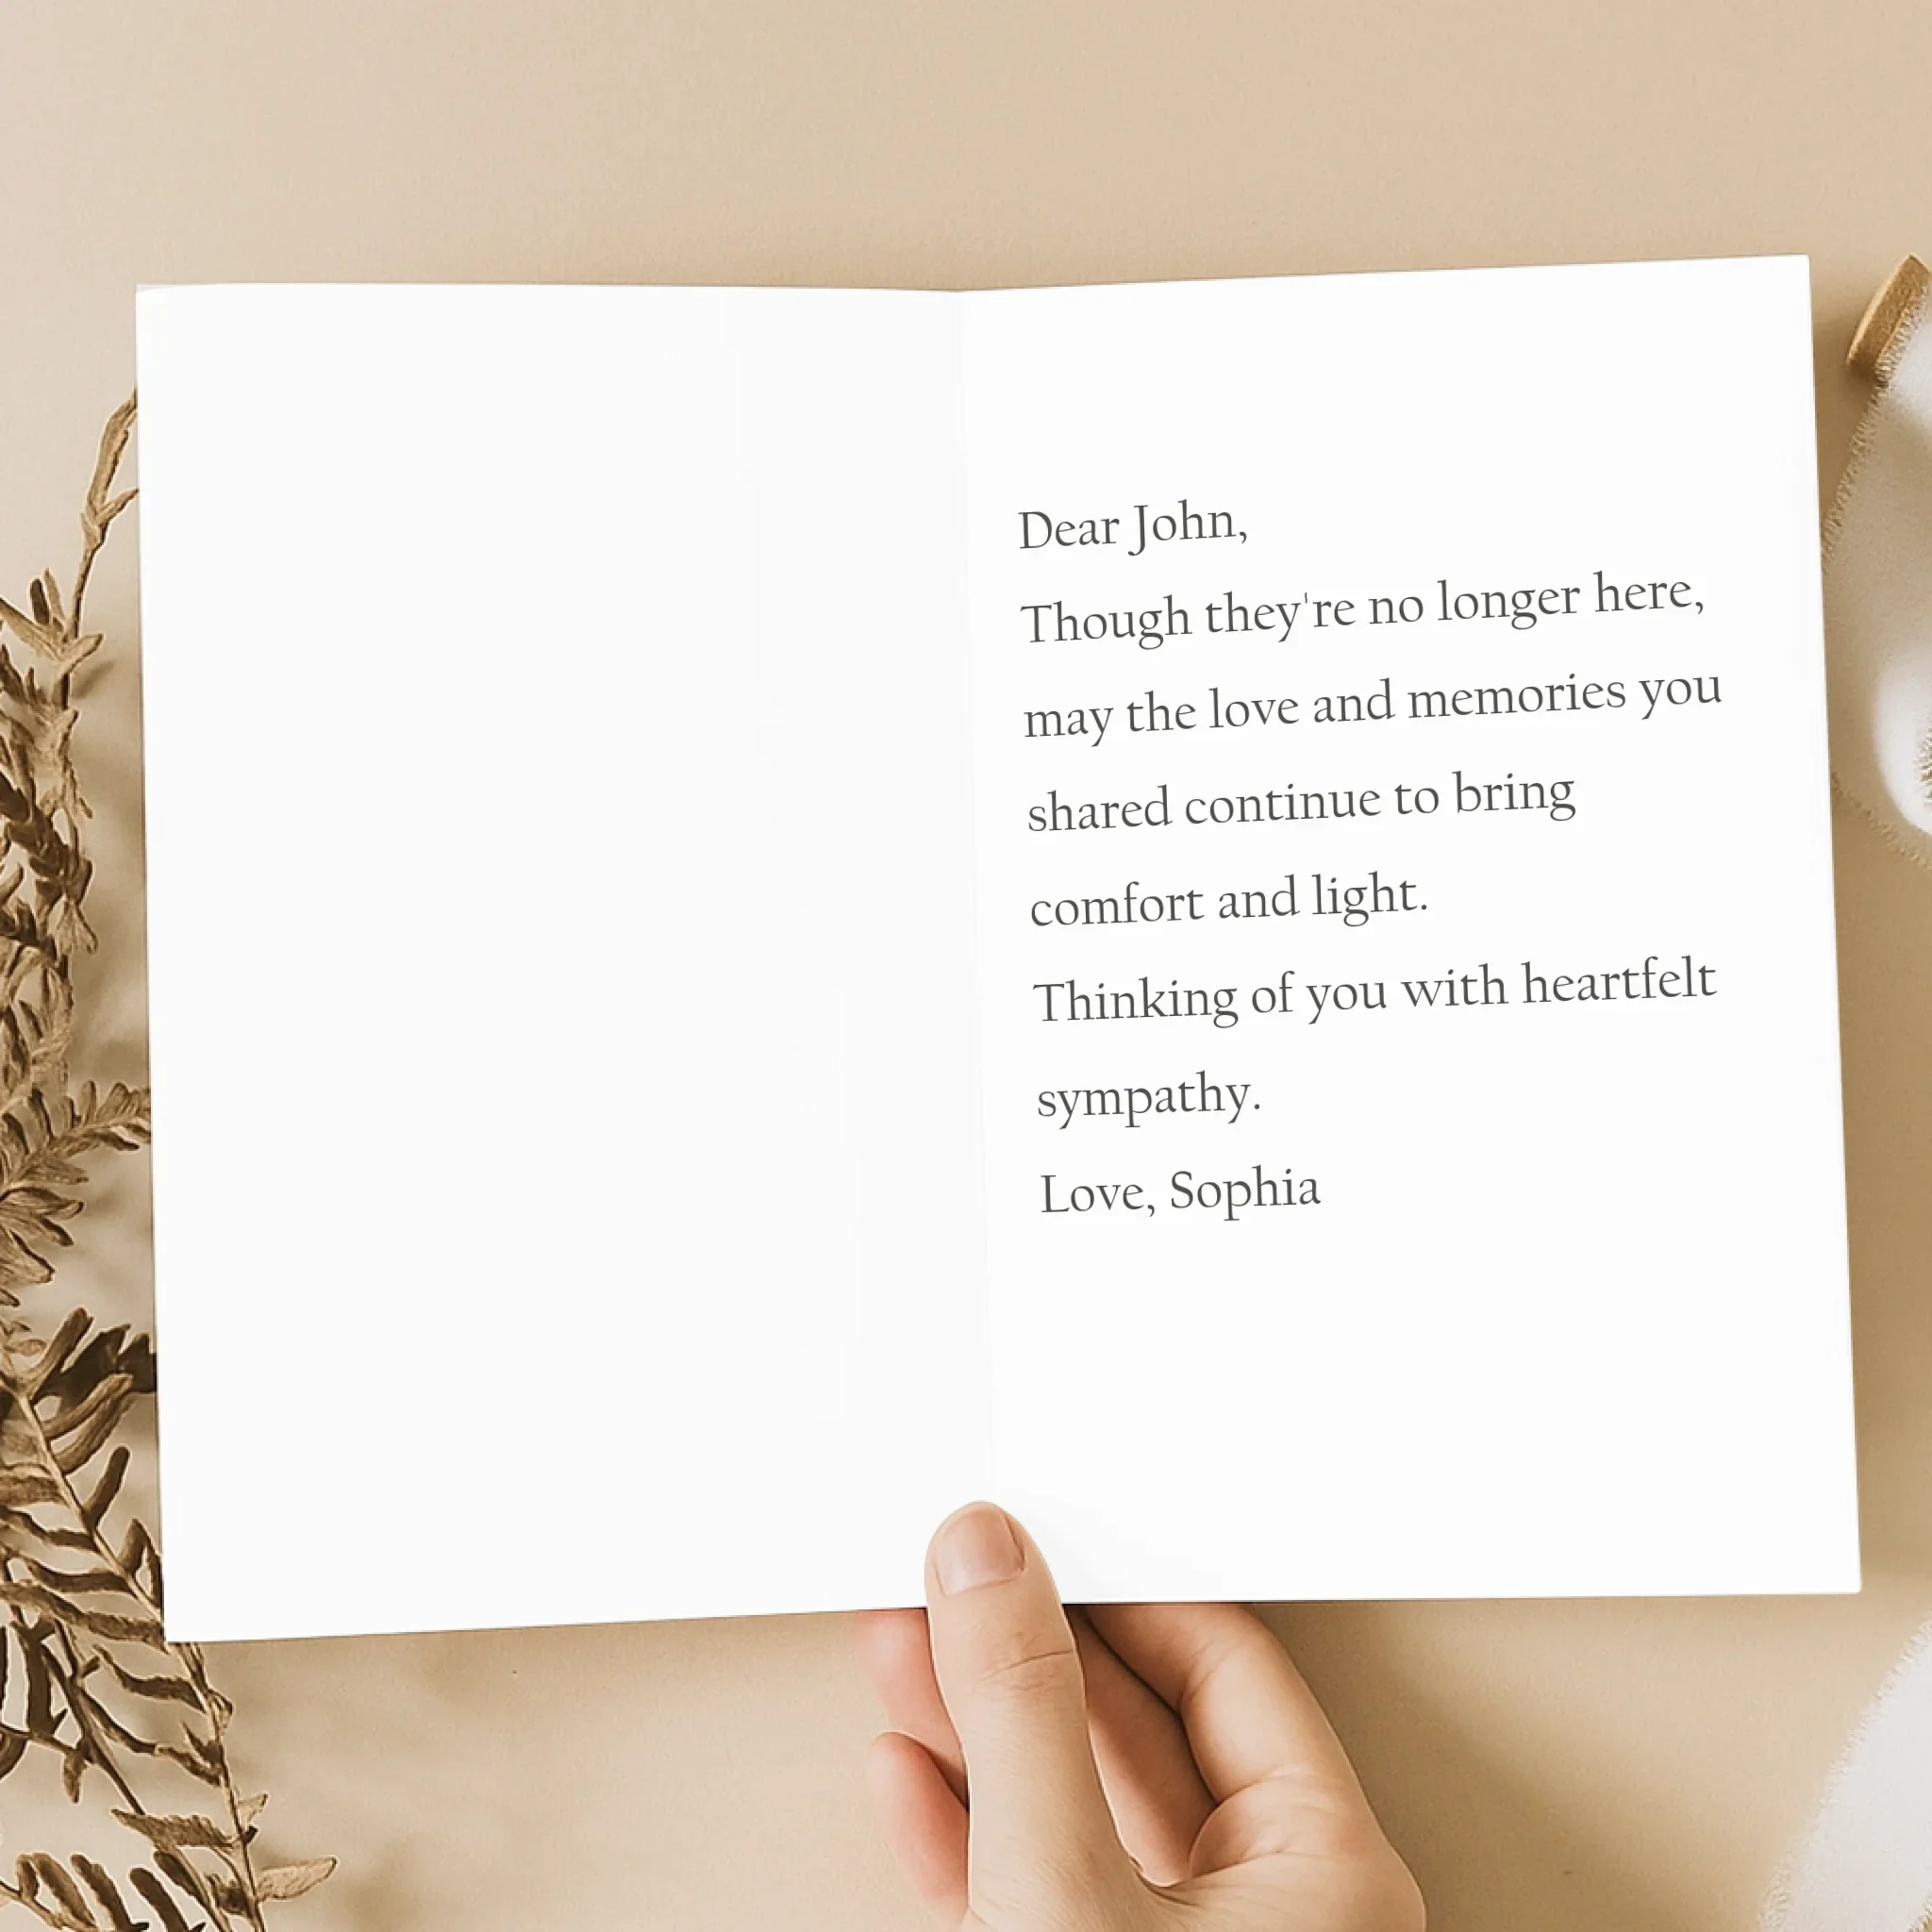 Dear John,
Though they're no longer here,
may the love and memories you
shared continue to bring
comfort and light.
Thinking of you with heartfelt
sympathy.
Love, Sophia